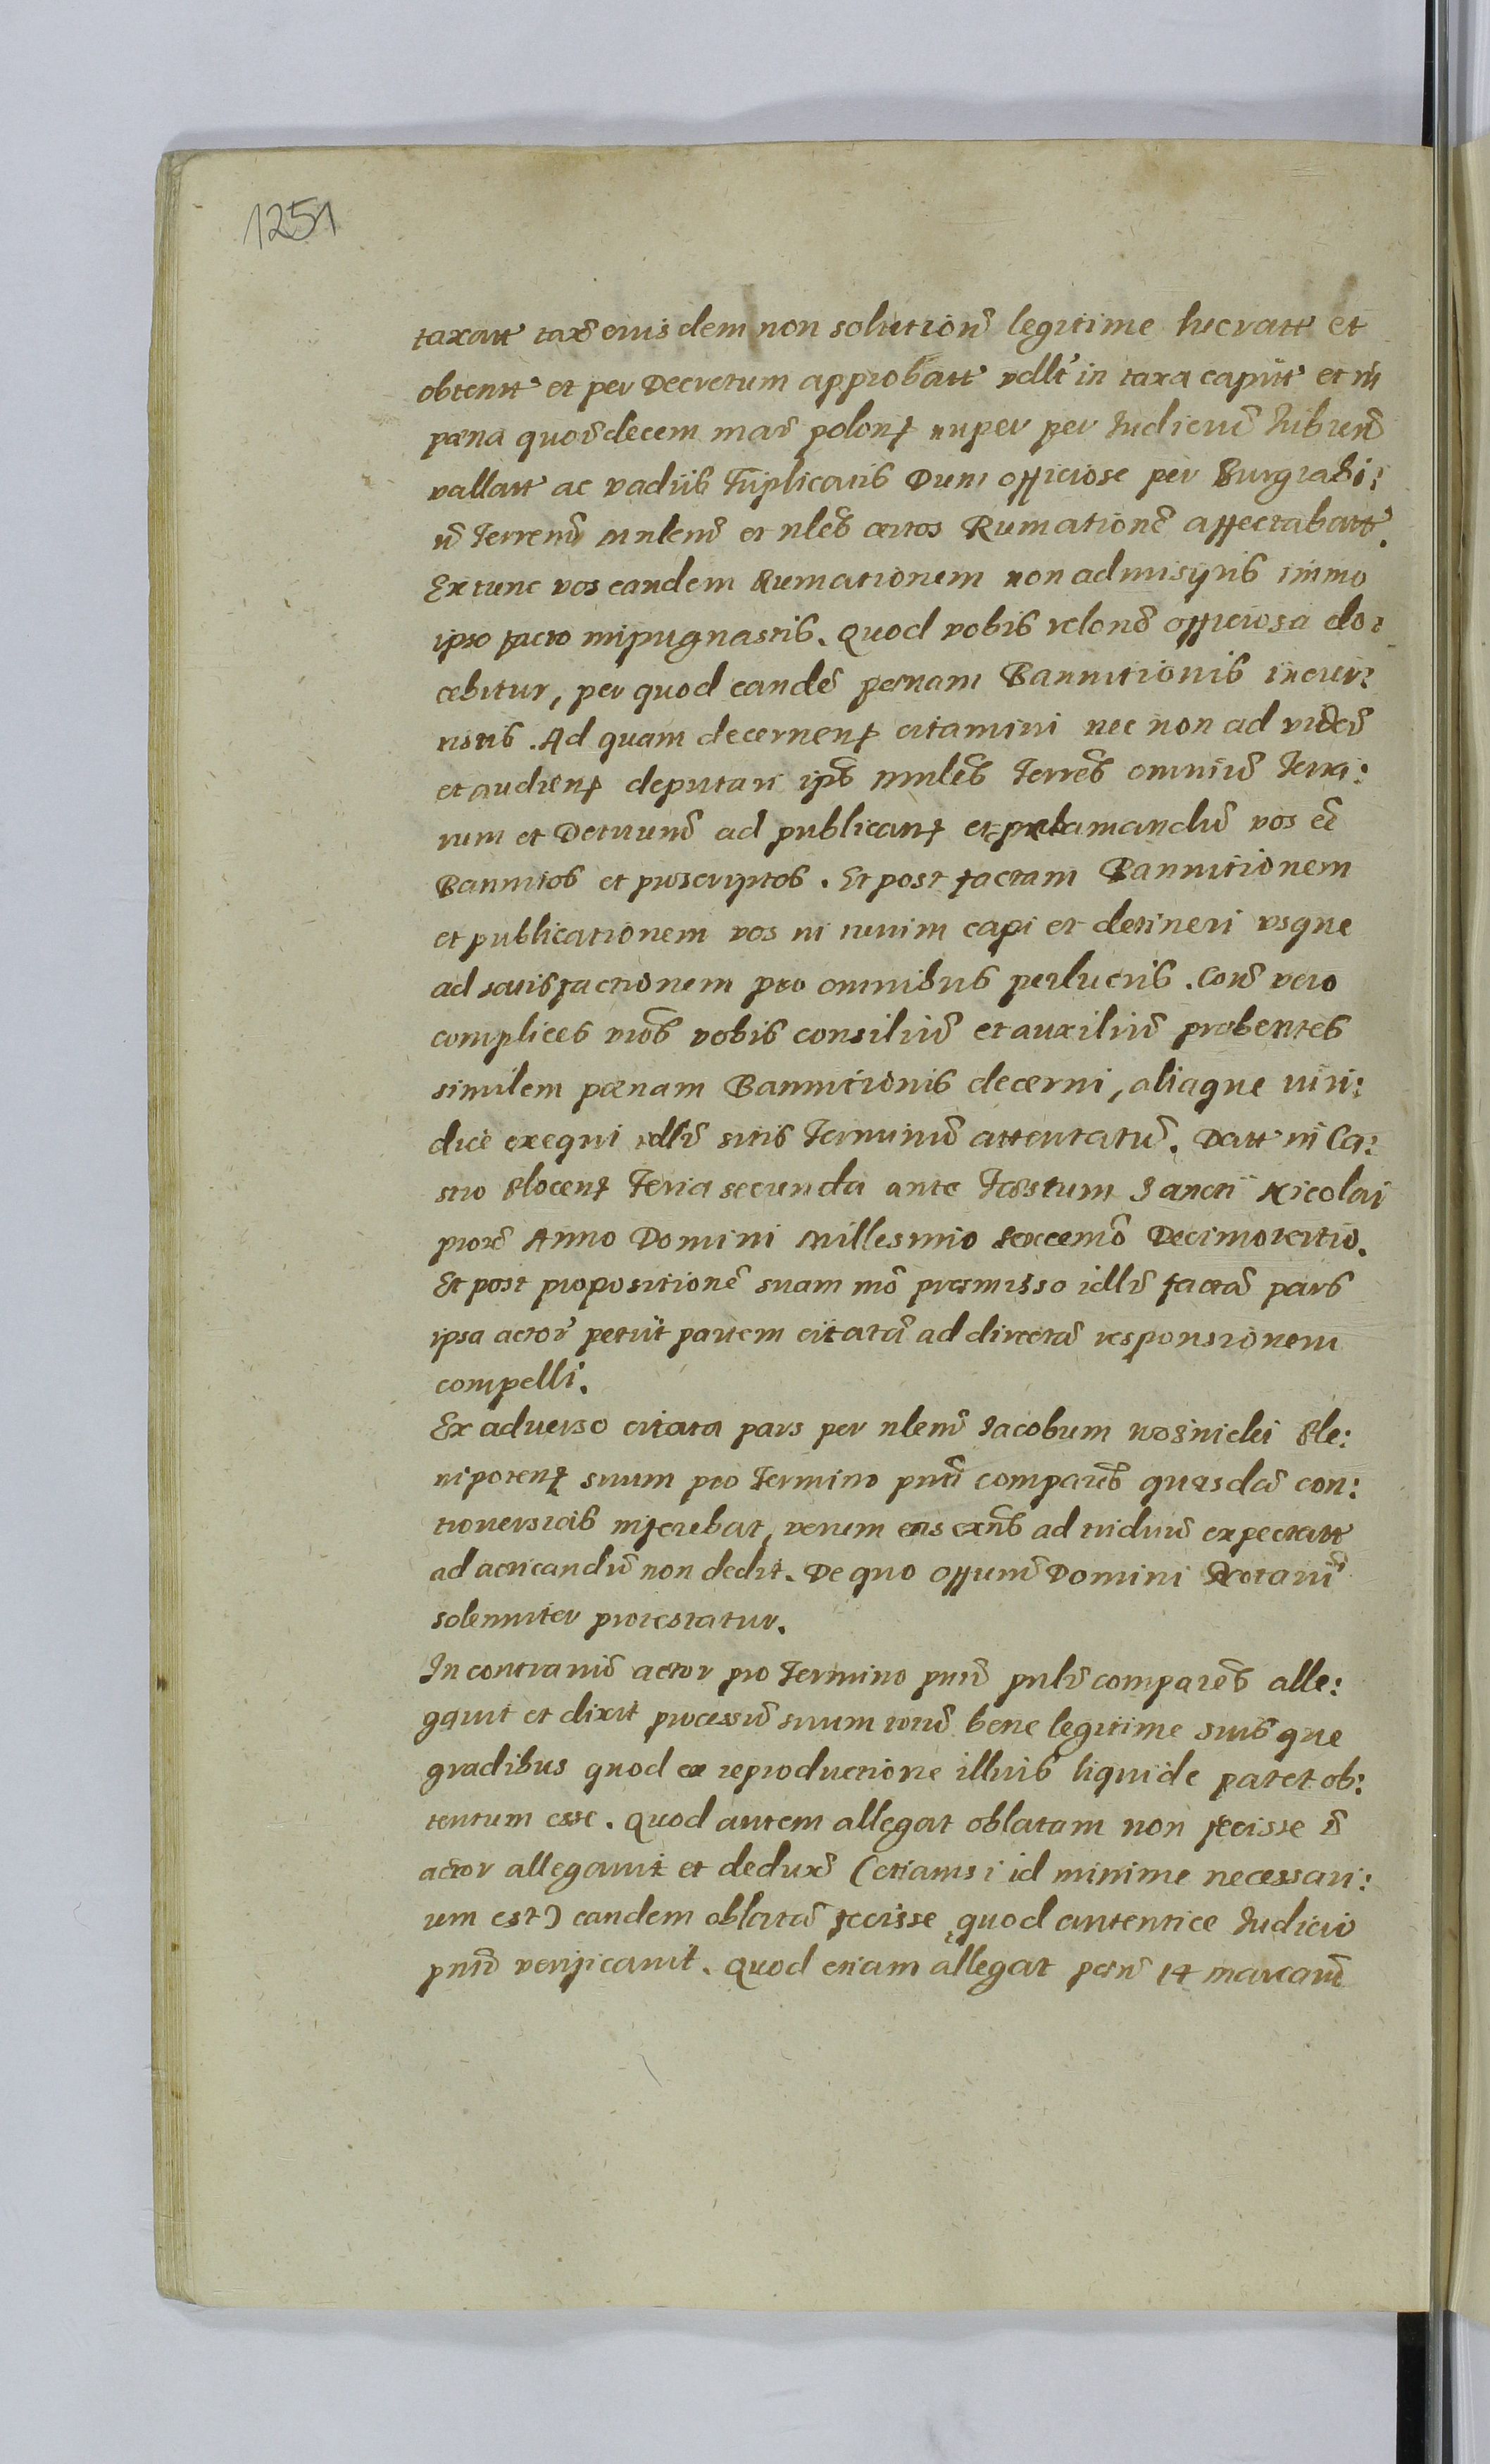 1251
taxatt taxõ euisdem non solutionẽ legitime lucratt et
obtentt et per Decretum approbatt vdlt in taxa capitt et in
pœna quordecem mar̃ polonę nuper per Iudiciũ tribunũ
vallatt ac vadiis triplicatis Dum officiose per Burgrabi:
ũ terrenũ Ministeriũ et nlẽs certos Rumationẽ affectabatt.
Extunc vos eandem Rumationem non admisistis immo
ipso facto impugnastis. Quod vobis relonẽ officiosa do:
cebitur, per quod eandẽ pœnam Bannitionis incur:
ristis. Ad quam decernenę citamini nec non ad vidẽ
et audienę deputari ipõs mnlẽs terrẽs omniũ terra:
rum et Districtuũ ad publicanę et proclamandũ vos eẽ
Bannitos et proscriptos. Et post factam Bannitionem
et publicationem vos ni ruuim capi et detineri vsque
ad satisfactionem pro omnibus perlucris. Contr̃ vero
complices vrõs vobis consiliũ et auxiliũ præbentes
similem pœnam Bannitionis decerni, aliaque iuri:
dicè exequi idlt̃ sitis terminũ attentaturĩ. Datt in Ca:
stro Plocenę feria secunda ante festum Sancti Nicolai
proxẽ Anno Domini Millesimo Sexcemõ Decimotertio.
Et post propositionẽ suam mõ præmisso idlt̃ factã pars
ipsa actor̃ petiit partem citatã ad directã responsionem
compelli.
Ex aduerso citata pars per nlem̃ Iacobum Wosnicki Ple:
nipotenę suum pro termino pntĩ comparẽs quasdã con:
trouersias inferebat, verum eas exñs ad triduũ expectatt
ad acticandũ non dedit. De quo officium̃ Domini Notarii
solemniter protestatur.
In contrariũ actor pro termino pntĩ pnlt̃ comparẽs alle:
gauit et dixit processũ suum totũ bene legitime suisque
gradibus quod ex reproductione illius liquide patet ob:
tentum esse. Quod autem allegat oblatam non fecisse ĩs
actor allegauit et deduxĩ (etiamsi id minime necessari:
um est) eandem oblatã fecisse quod autentice Iudicio
pntĩ verificauit. Quod etiam allegat pœnã 14 marcarũ